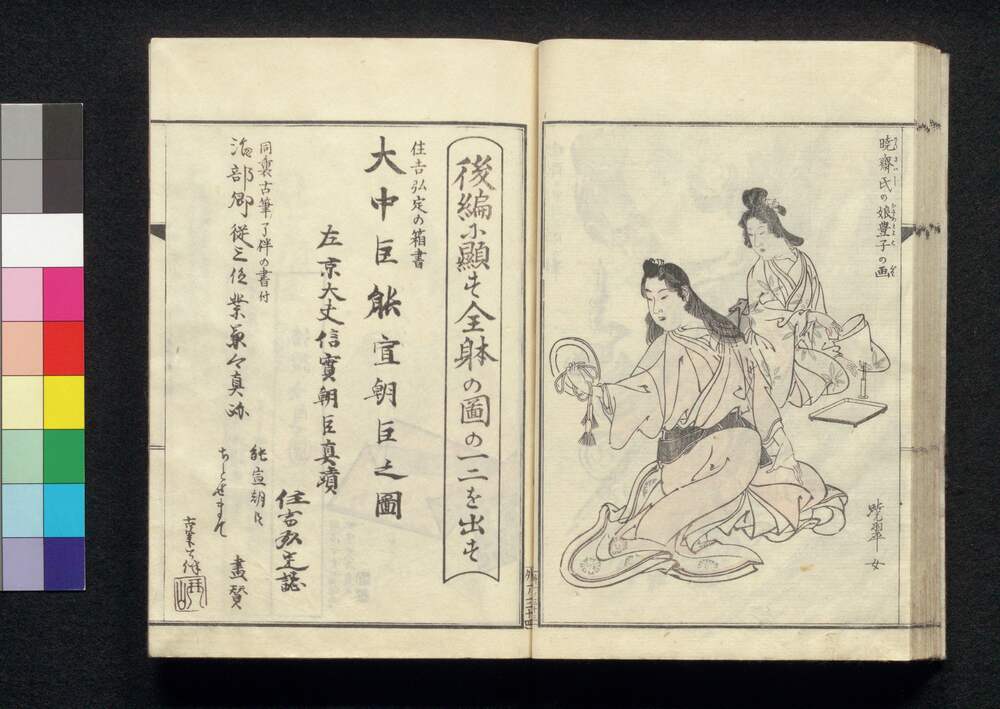 暁齋氏の娘豊子の画
暁翠女
後編に顕す全躰の圖の一二を出す
住吉弘定の箱書
大中臣能宣朝臣之圖
左京大夫信實朝臣真蹟
住吉弘定誌
同裏古筆了伴の書付
治部卿従三位業兼々真跡
能宣朝臣
ちとせまて
畫賛
古筆了伴